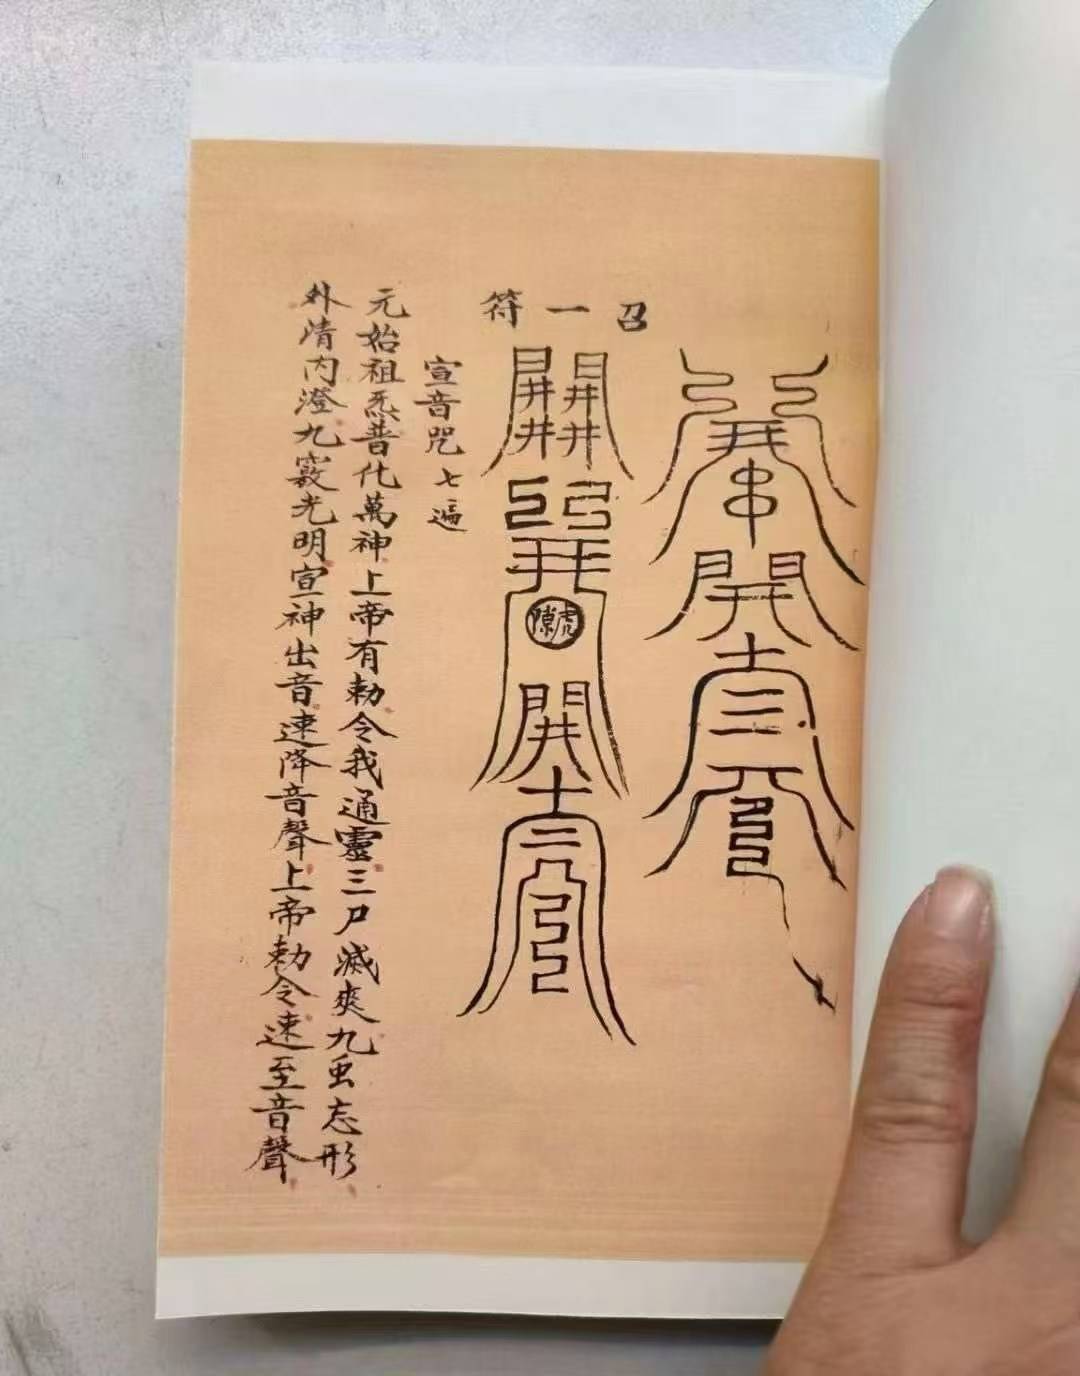 召一符
隙虎
宣音咒七遍
元始祖炁普化萬神上帝有勅令我通靈三尸滅爽九虫忘形
外清内澄九竅光明宣神出音速降音聲上帝勅令速至音聲